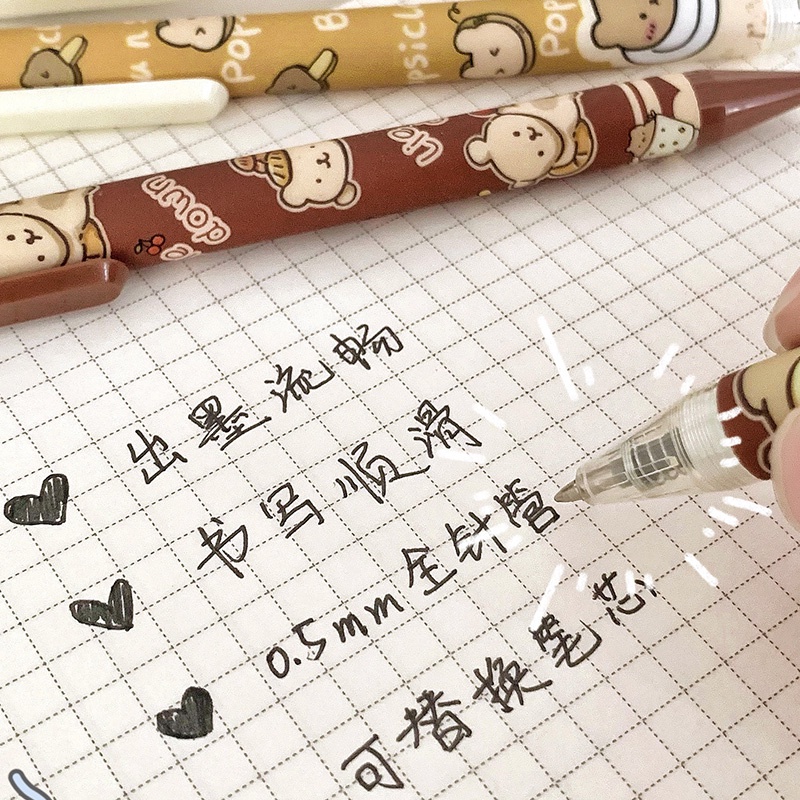 Popsicl
down
出墨流畅
书写顺滑
0.5mm全针管
可替换笔芯